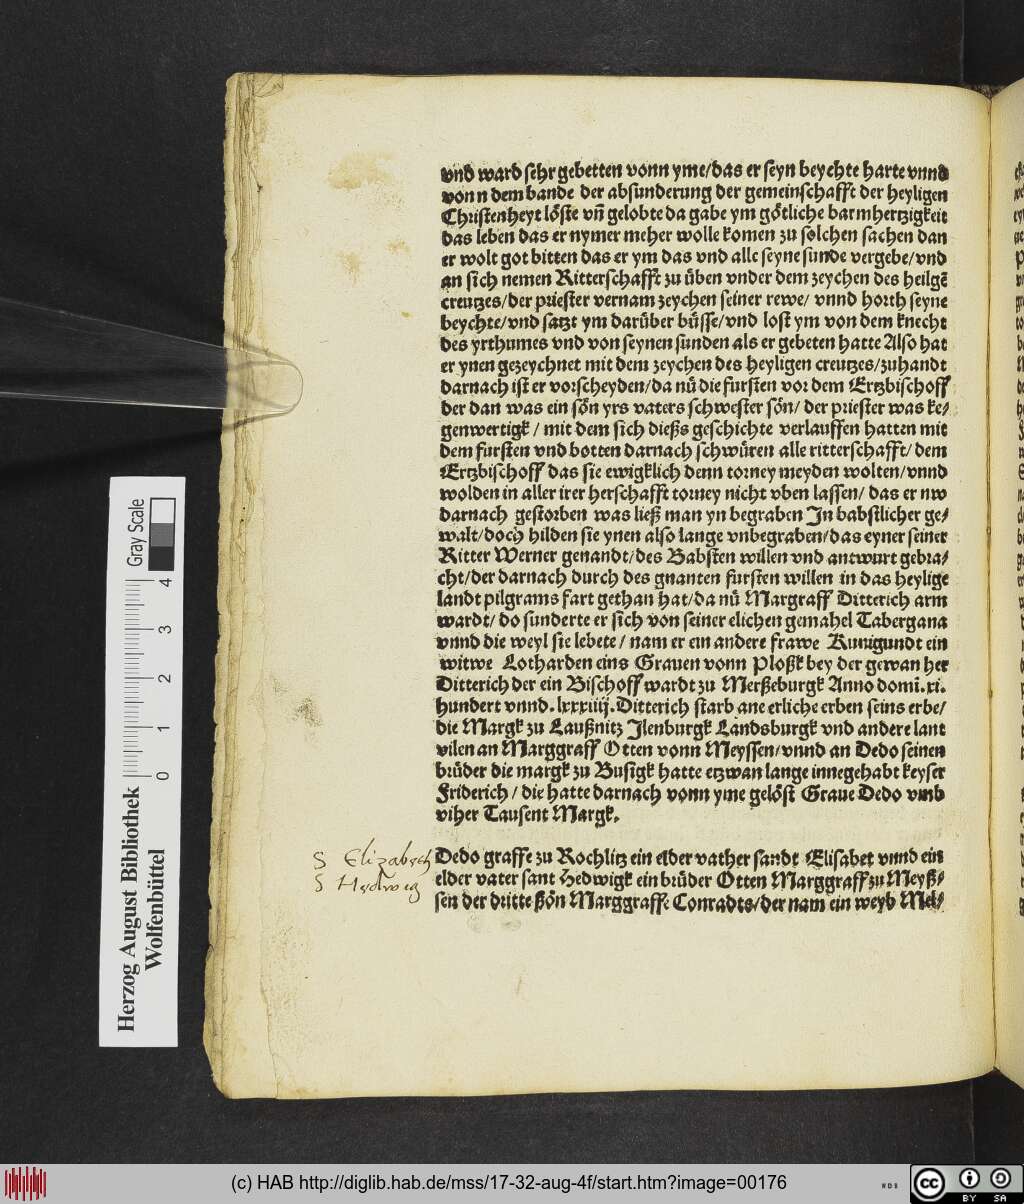 vnd ward sehr gebetten vonn yme/das er seyn beychte harte vnnd
vonn dem bande der absunderung der gemeinschafft der heyligen
Christenheyt löste vñ gelobte da gabe ym götliche barmhertzigkeit
das leben das er nymer meher wolle komen zu solchen sachen dan
er wolt got bitten das er ym das vnd alle seyne sunde vergebe/vnd
an sich nemen Ritterschafft zu üben vnder dem zeychen des heilgẽ
creutzes/der priester vernam zeychen seiner rewe/ vnnd horth seyne
beychte/vnd satzt ym darüber büsse/vnd lost ym von dem knecht
des yrthumes vnd von seynen sunden als er gebeten hatte Also hat
er ynen gezeychnet mit dem zeychen des heyligen creutzes/zuhandt
darnach ist er vorscheyden/da nü die fursten vor dem Ertzbischoff
der dan was ein sön yrs vaters schwester sön/ der priester was ke/
genwertigk / mit dem sich dießs geschichte verlauffen hatten mit
dem fursten vnd botten darnach schwüren alle ritterschafft/ dem
Ertzbischoff das sie ewigklich denn torney meyden wolten/vnnd
wolden in aller irer herschafft torney nicht vben lassen/ das er nw
darnach gestorben was ließ man yn begraben In babstlicher ge/
walt/doch hilden sie ynen also lange vnbegraben/das eyner seiner
Ritter Werner genandt/des Babsten willen vnd antwurt gebra/
cht/der darnach durch des gnanten fursten willen in das heylige
landt pilgrams fart gethan hat/da nü Margraff Ditterich arm
wardt/ do sunderte er sich von seiner elichen gemahel Tabergana
vnnd die weyl sie lebete / nam er ein andere frawe Kunigundt ein
witwe Lotharden eins Grauen vonn Ploßk bey der gewan her
Ditterich der ein Bischoff wardt zu Merßeburgk Anno domĩ.xi.
hundert vnnd.lxxxiiij.Ditterich starb ane erliche erben seins erbe/
die Margk zu Laußnitz Jlenburgk Landsburgk vnd andere lant
vilen an Marggraff Otten vonn Meyssen/vnnd an Dedo seinen
brüder die margk zu Busigk hatte etzwan lange innegehabt keyser
Friderich / die hatte darnach vonn yme gelöst Graue Dedo vmb
viher Tausent Margk.
S Elizabeth
S Hedwig
Dedo graffe zu Rochlitz ein elder vather sandt Elisabet vnnd ein
elder vater sant Hedwigk ein brüder Otten Marggraff zu Meyß/
sen der dritte ßön Marggraffe Conradts/der nam ein weyb Mel/
Herzog August Bibliothek
Wolfenbüttel
0 1 2 3 4
Gray Scale
(c) HAB http://diglib.hab.de/mss/17-32-aug-4f/start.htm?image=00176
WDB
cc BY SA